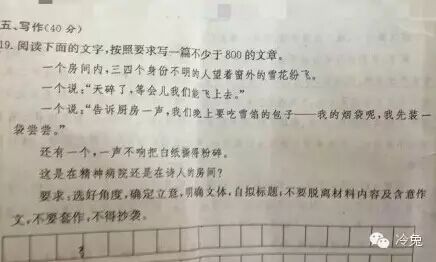 五、写作(40分)
19. 阅读下面的文字,按照要求写一篇不少于800的文章。
一个房间内,三四个身份不明的人望着窗外的雪花纷飞。
一个说:“天碎了,等会儿我们能飞上去。”
一个说:“告诉厨房一声,我们晚上要吃雪馅的包子——我的烟袋呢,我先装一
袋尝尝。”
还有一个,一声不响把白纸撕得粉碎。
这是在精神病院还是在诗人的房间?
要求:选好角度,确定立意,明确文体,自拟标题;不要脱离材料内容及含意作
文,不要套作,不得抄袭。
冷兔